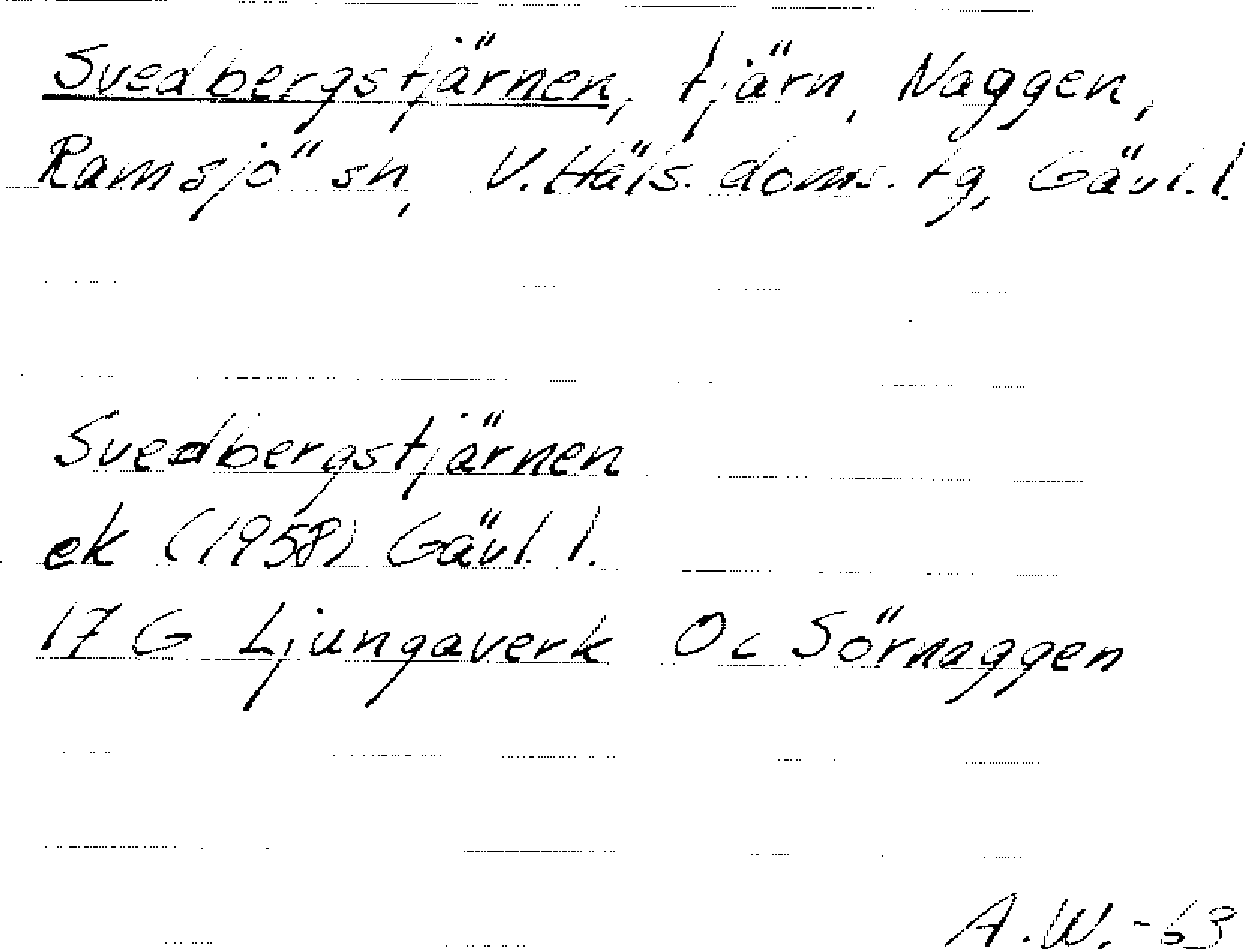 Svedbergstjärnen, tjärn, Naggen,
Ramsjö sn, V. Häls. doms. tg, Gävl. l.
Svedbergstjärnen
ek (1958) Gävl. l.
17 G Ljungaverk Oc Sörnaggen
A.W. -63